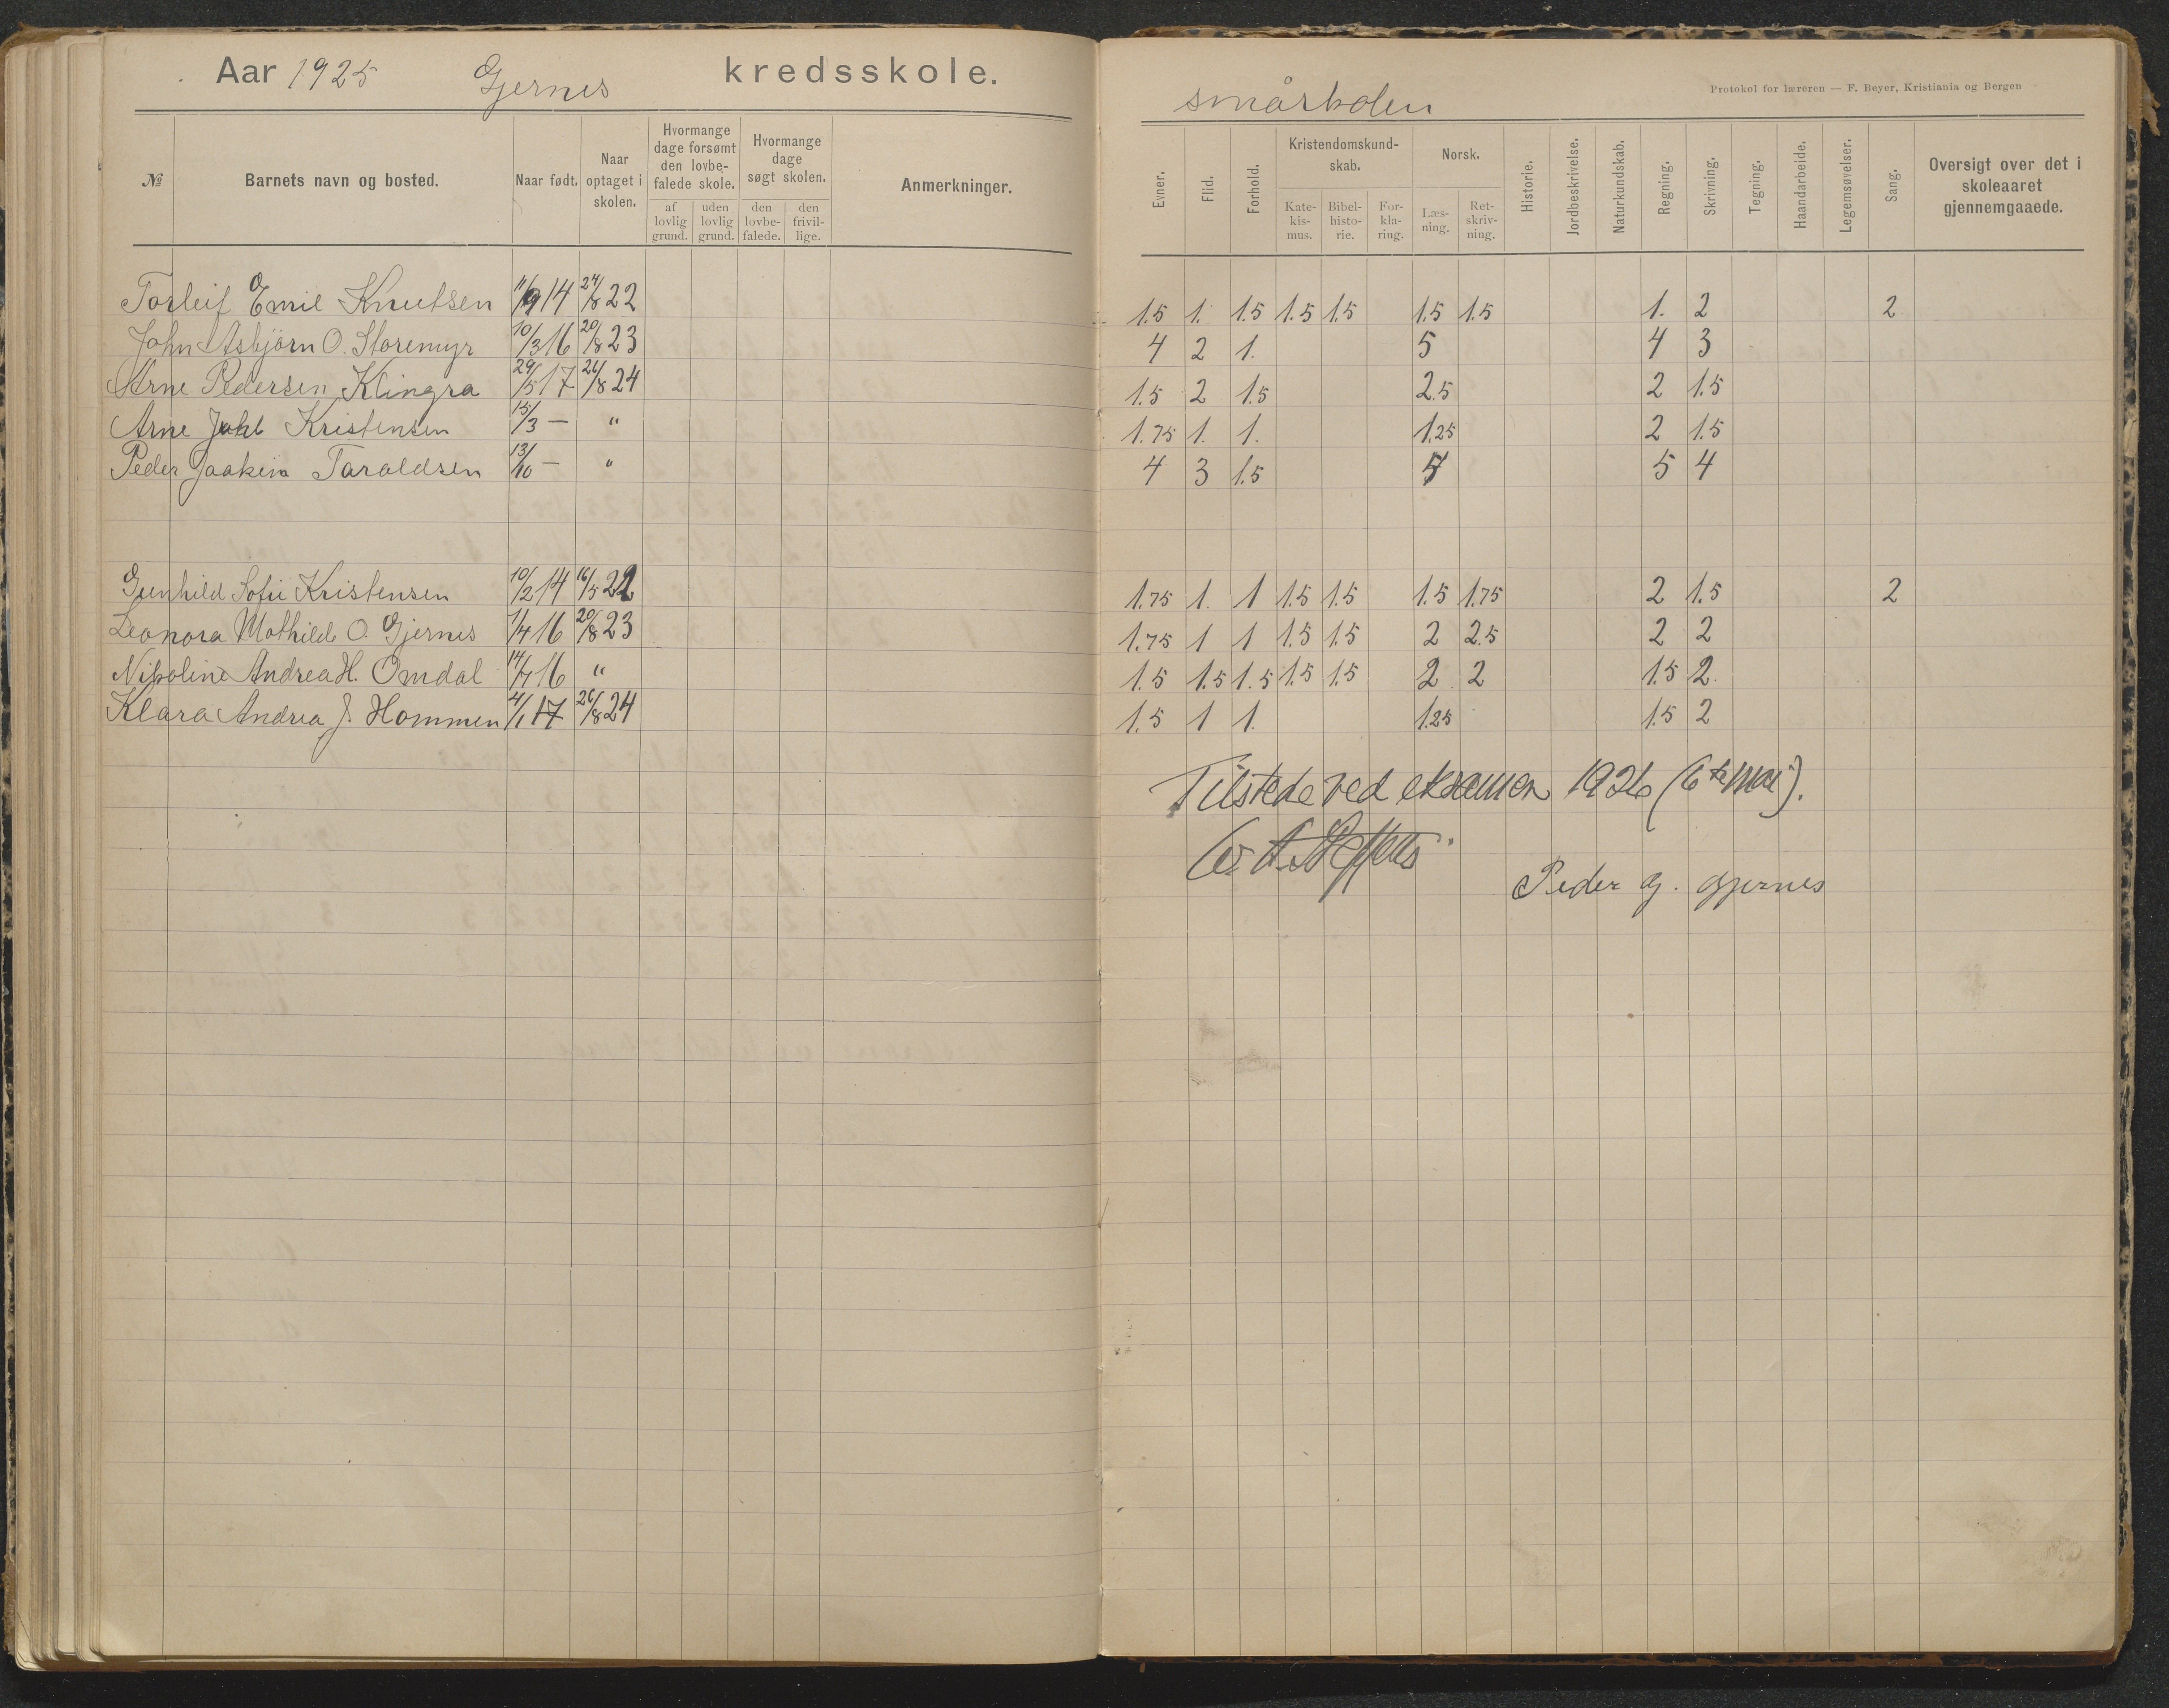 Aar 1925 Gjernes kredsskole.
småskolen
Protokol for læreren — F. Beyer, Kristiania og Bergen
№ Barnets navn og bosted. Naar født. Naar optaget i skolen. Hvormange dage forsømt den lovbefalede skole. af lovlig grund. uden lovlig grund. Hvormange dage søgt skolen. den lovbefalede. den frivillige. Anmerkninger.
Evner. Flid. Forhold. Kristendomskundskab. Katekismus. Bibelhistorie. Forklaring. Norsk. Læsning. Retskrivning. Historie. Jordbeskrivelse. Naturkundskab. Regning. Skrivning. Tegning. Haandarbeide. Legemsøvelser. Sang. Oversigt over det i skoleaaret gjennemgaaede.
Torleif Emil Knutsen 11/9 14 24/8 22 1.5 1. 1.5 1.5 1.5 1.5 1.5 1. 2 2
John Asbjörn O. Storemyr 10/3 16 20/8 23 4 2 1. 5 4 3
Arne Pedersen Klingra 29/5 17 26/8 24 1.5 2 1.5 2.5 2 1.5
Arne Kristensen 15/3 — " 1.75 1. 1. 1.25 2 1.5
Peder Joakim Taraldsen 13/10 — " 4 3 1.5 5 4
Gunhild Sofie Kristensen 10/2 14 16/5 22 1.75 1. 1 1.5 1.5 1.5 1.75 2 1.5 2
Leonora Mathilde O. Gjernes 1/4 16 20/8 23 1.75 1 1 1.5 1.5 2 2.5 2 2
Nikoline Andrea H. Omdal 14/7 16 " 1.5 1.5 1.5 1.5 1.5 2 2 1.5 2.
Klara Andrea J. Hommen 4/1 17 26/8 24 1.5 1 1. 1.25 1.5 2
Tilstede ved eksamen 1926 (6te mai).
Peder G. Gjernes